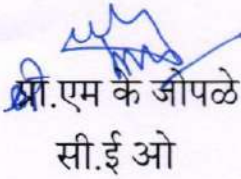 श्री.एम के जोपळे
सी.ई ओ